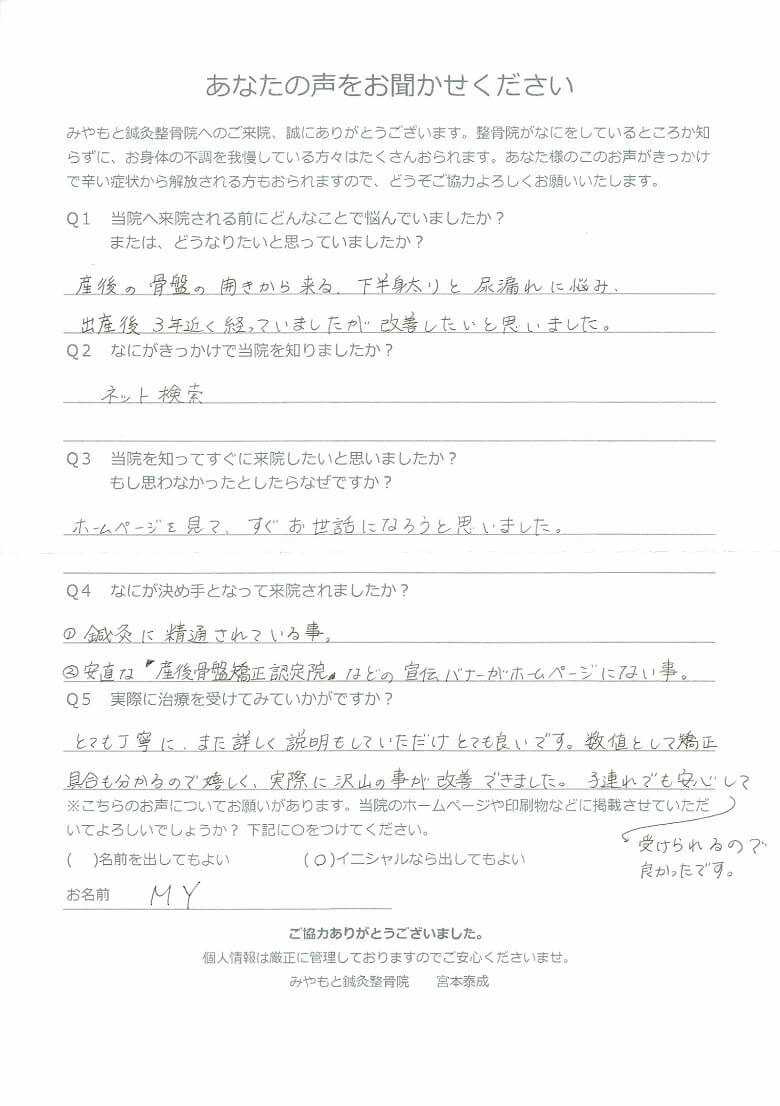 あなたの声をお聞かせください
みやもと鍼灸整骨院へのご来院、誠にありがとうございます。整骨院がなにをしているところか知
らずに、お身体の不調を我慢している方々はたくさんおられます。あなた様のこのお声がきっかけ
で辛い症状から解放される方もおられますので、どうぞご協力よろしくお願いいたします。
Q1 当院へ来院される前にどんなことで悩んでいましたか？
または、どうなりたいと思っていましたか？
産後の骨盤の開きから来る、下半身太りと尿漏れに悩み、
出産後3年近く経っていましたが改善したいと思いました。
Q2 なにがきっかけで当院を知りましたか？
ネット検索
Q3 当院を知ってすぐに来院したいと思いましたか？
もし思わなかったとしたらなぜですか？
ホームページを見て、すぐお世話になろうと思いました。
Q4 なにが決め手となって来院されましたか？
①鍼灸に精通されている事。
②安直な『産後骨盤矯正認定院』などの宣伝バナーがホームページにない事。
Q5 実際に治療を受けてみていかがですか？
とても丁寧に、また詳しく説明もしていただけとても良いです。数値として矯正
具合も分かるので嬉しく、実際に沢山の事が改善できました。子連れでも安心して
受けられるので
良かったです。
※こちらのお声についてお願いがあります。当院のホームページや印刷物などに掲載させていただ
いてよろしいでしょうか？下記に○をつけてください。
( )名前を出してもよい (○)イニシャルなら出してもよい
お名前 MY
ご協力ありがとうございました。
個人情報は厳正に管理しておりますのでご安心くださいませ。
みやもと鍼灸整骨院 宮本泰成